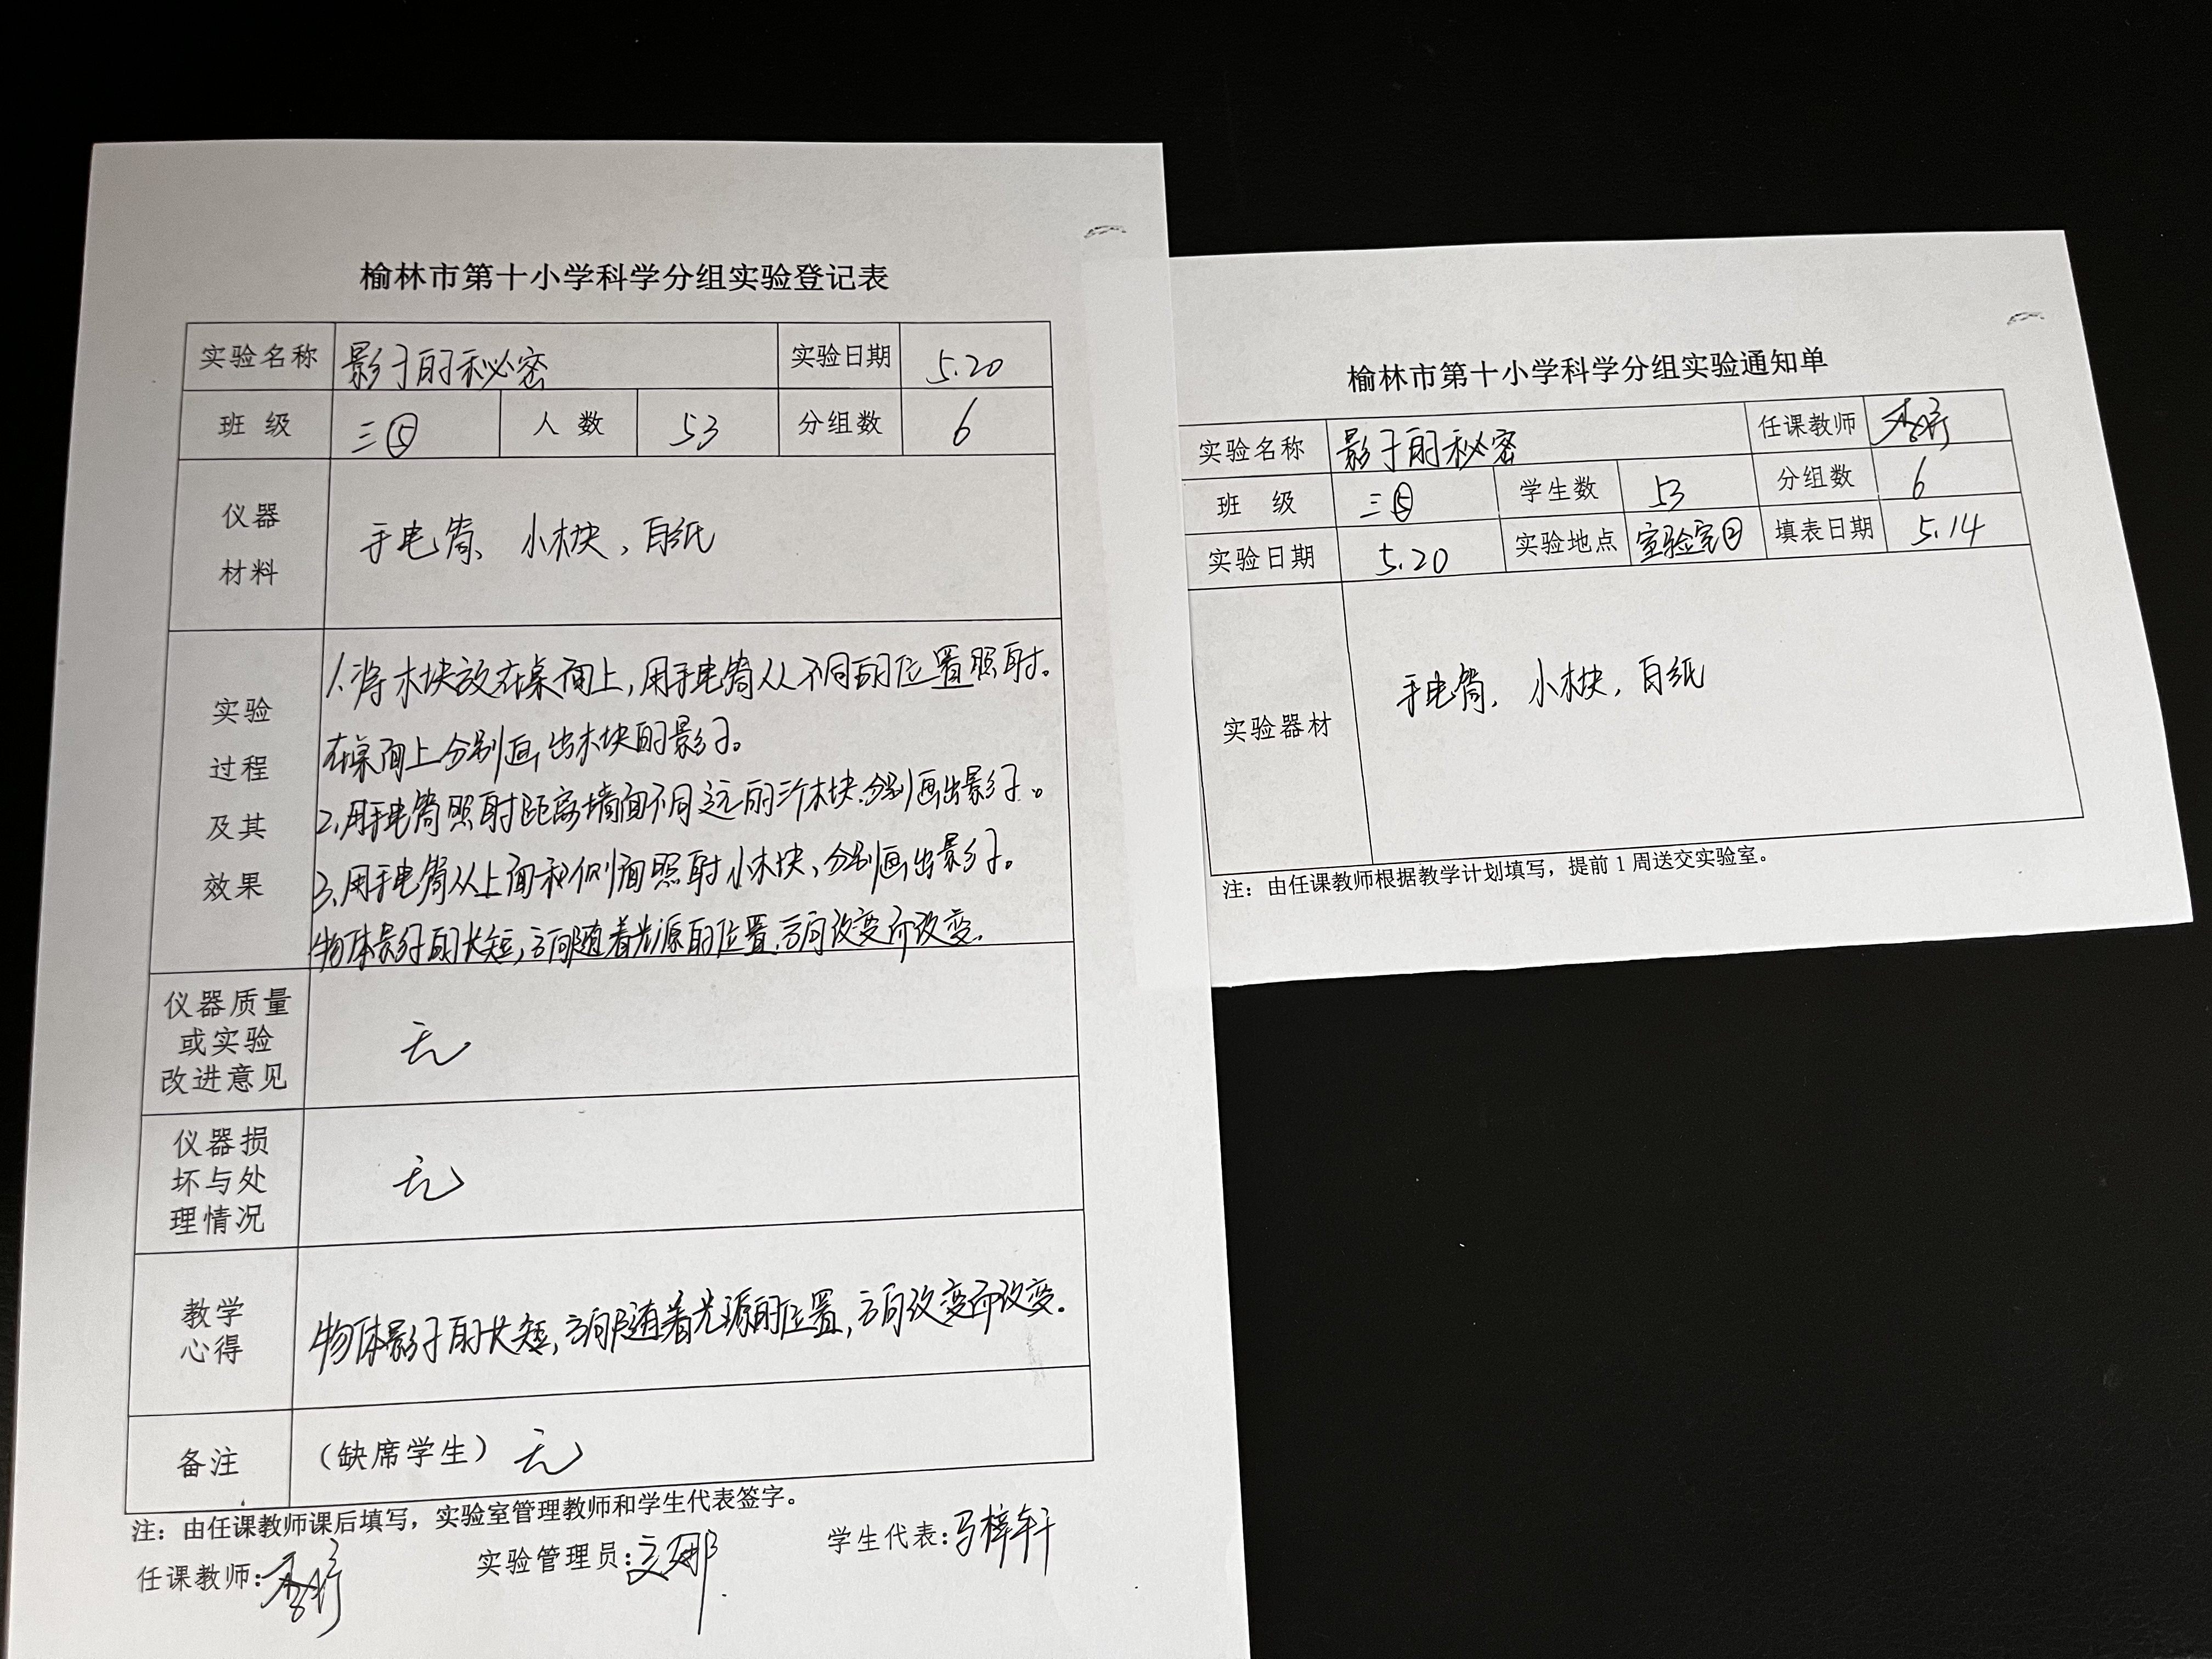 榆林市第十小学科学分组实验登记表
实验名称 影子的秘密 实验日期 5.20
班 级 三⑤ 人 数 53 分组数 6
仪器
材料
手电筒、小木块,白纸
实验
过程
及其
效果
1.将木块放在桌面上,用手电筒从不同的位置照射。
在桌面上分别画出木块的影子。
2.用手电筒照射距离墙面不同远的三个木块.分别画出影子。
3.用手电筒从上面和侧面照射小木块,分别画出影子。
物体影子的长短,方向随着光源的位置.方向改变而改变.
仪器质量
或实验
改进意见
无
仪器损
坏与处
理情况
无
教学
心得
物体影子的长短,方向随着光源的位置,方向改变而改变.
备注 (缺席学生) 无
注:由任课教师课后填写,实验室管理教师和学生代表签字。
任课教师: 实验管理员: 学生代表:马梓轩
榆林市第十小学科学分组实验通知单
实验名称 影子的秘密 任课教师
班 级 三⑤ 学生数 53 分组数 6
实验日期 5.20 实验地点 实验室② 填表日期 5.14
实验器材 手电筒,小木块,白纸
注:由任课教师根据教学计划填写,提前1周送交实验室。